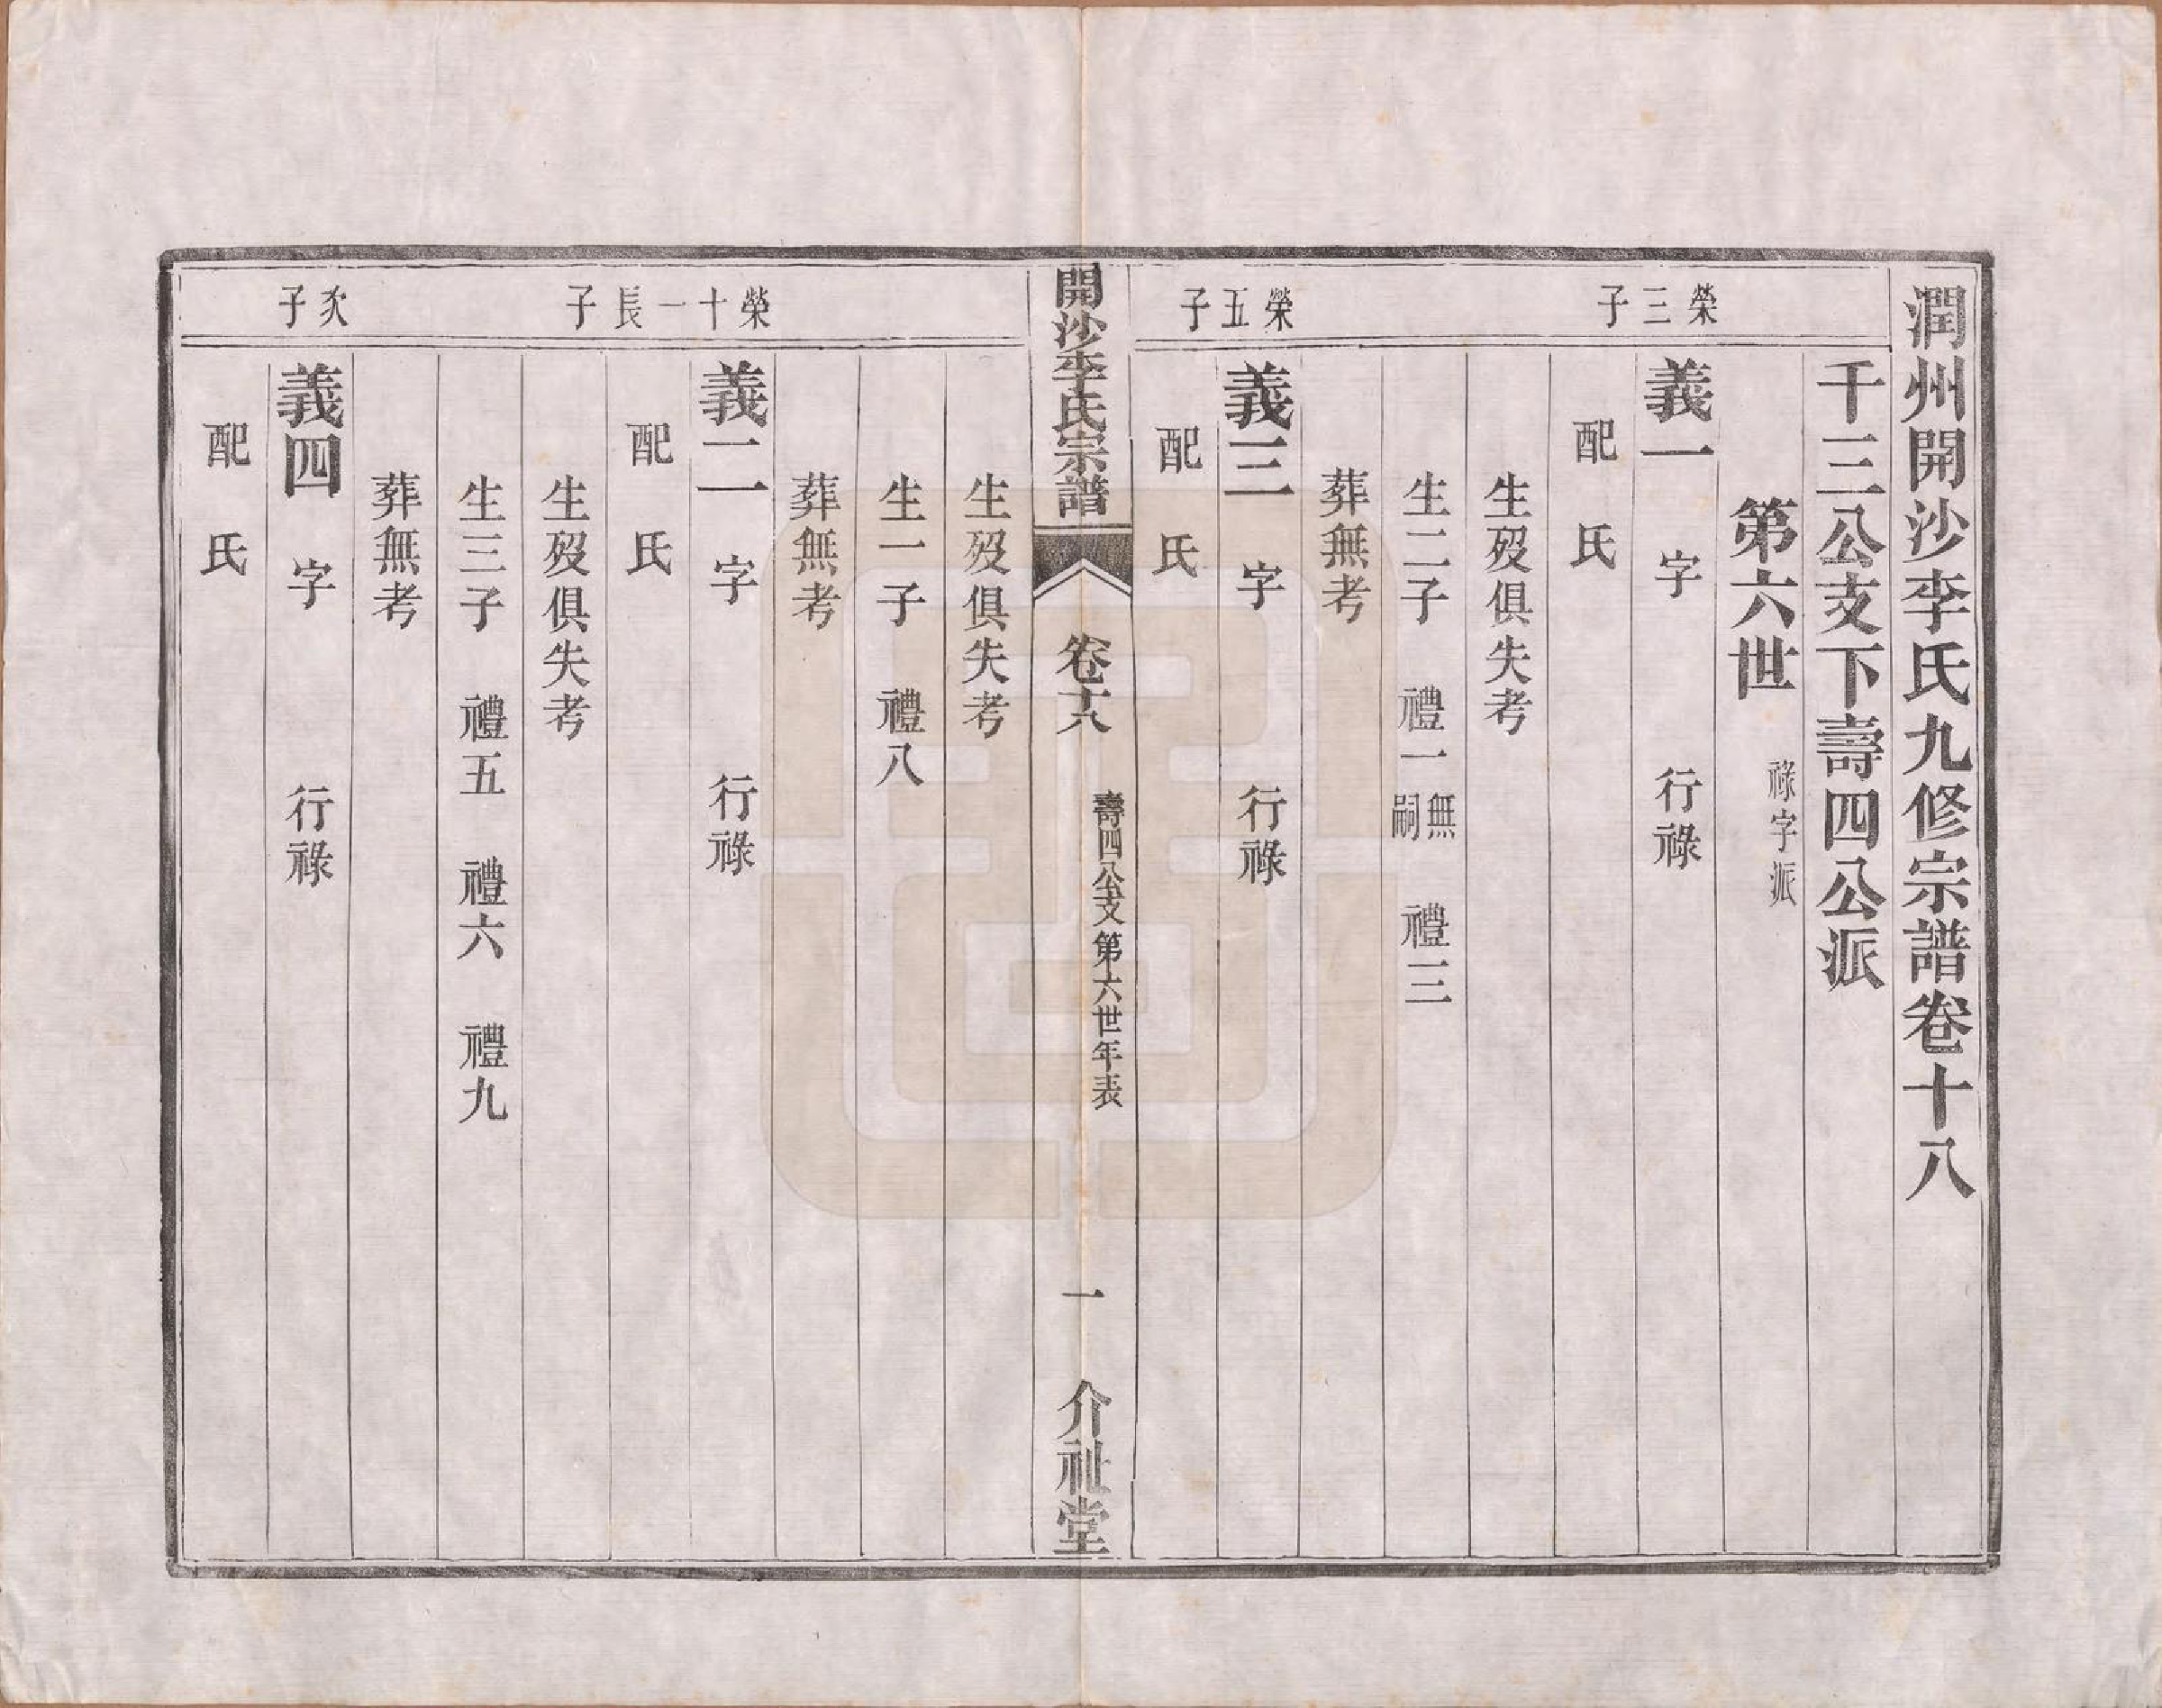 潤州開沙李氏九修宗譜卷十八
千三公支下壽四公派
第六世 祿字派
榮三子
義一 字 行祿
配 氏
生歿俱失考
生二子 禮一 無嗣 禮三
葬無考
榮五子
義三 字 行祿
配 氏
開沙李氏宗譜 卷十八 壽四公支第六世年表 一 介祉堂
生歿俱失考
生一子 禮八
葬無考
榮十一長子
義二 字 行祿
配 氏
生歿俱失考
生三子 禮五 禮六 禮九
葬無考
次子
義四 字 行祿
配 氏